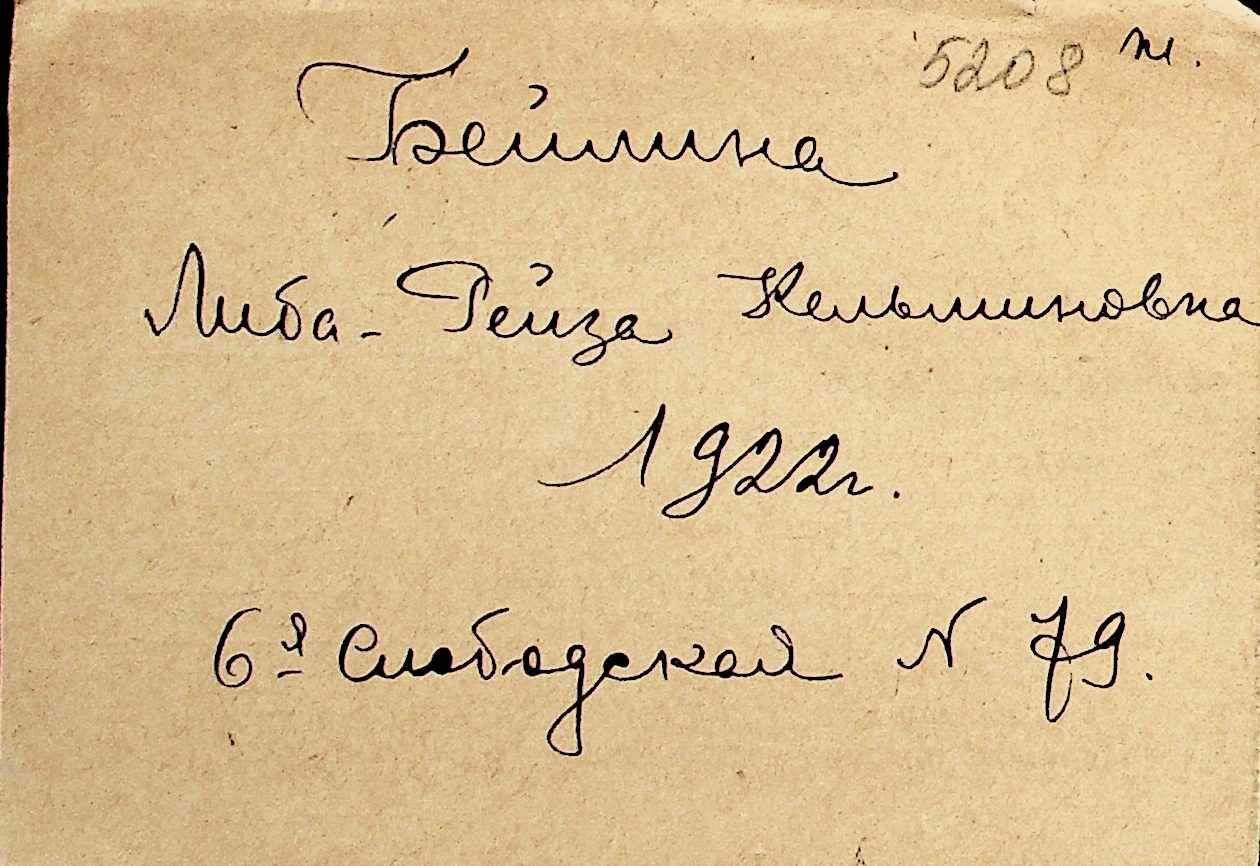 5208 м.
Бейлина
Либа-Рейза Кельмановна
1922г.
6я Слободская N 79.